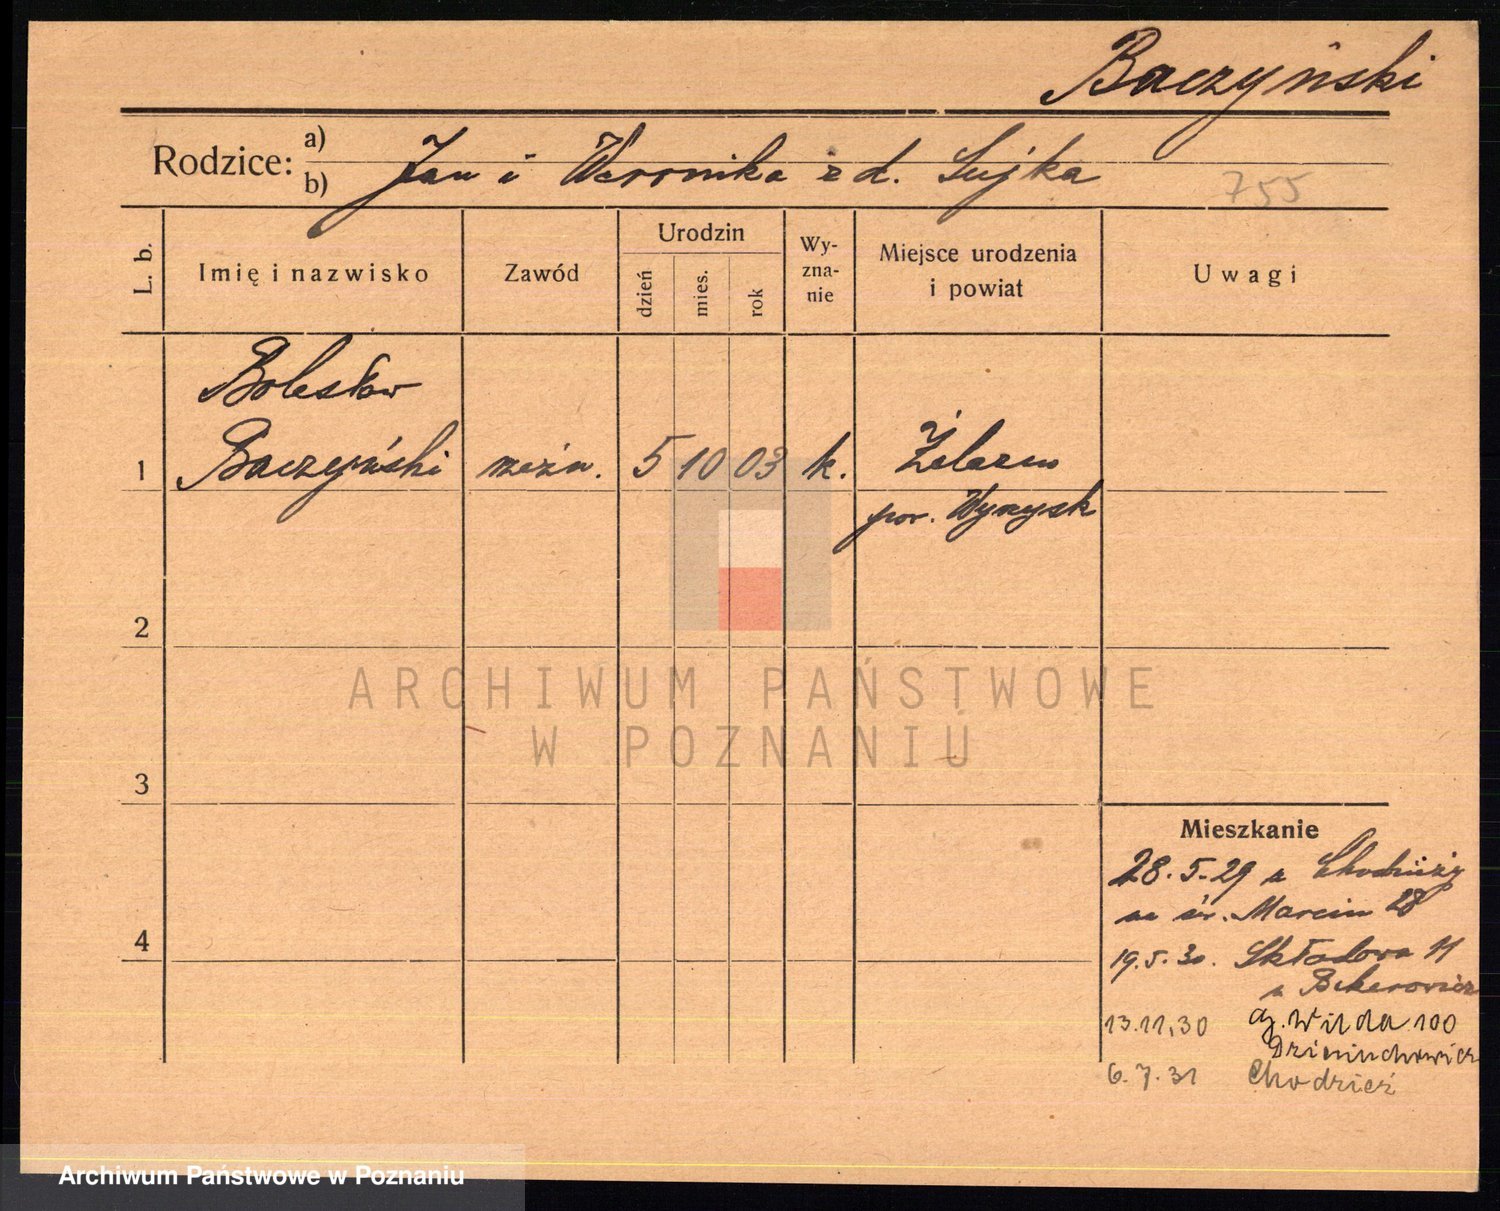 Baczyński
Rodzice: a) b) Jan i Weronika z d. Sujka
755
L. b. Imię i nazwisko Zawód Urodzin dzień mies. rok Wy-zna-nie Miejsce urodzenia i powiat Uwagi
Bolesław
1 Baczyński rzeźn. 5 10 03 k. Żelazno
pow. Wyrzysk
2
ARCHIWUM PAŃSTWOWE
W POZNANIU
3
Mieszkanie
28.5.29 z Chodzieży
na św. Marcin 28
4
19.5.30. Składowa 11
13.11.30 G. Wilda 100
6.7.31 Chodzież
Archiwum Państwowe w Poznaniu